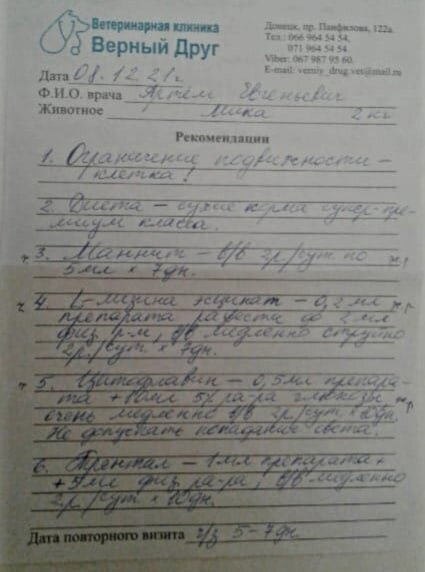 Ветеринарная клиника
Верный Друг
Донецк, пр. Панфилова, 122а.
Тел.: 066 964 54 54,
071 964 54 54.
Viber: 067 987 95 60.
E-mail: verniy_drug.vet@mail.ru
Дата 08.12.21г
Ф.И.О. врача Артём Евгеньевич
Животное Мика 2 кг
Рекомендации
1. Ограничение подвижности –
клетка!
2. Диета – сухие корма супер-пре-
миум класса.
3. Маннит – в/в 2р/сут по
5мл х 7дн.
4. L-лизина эсцинат – 0,2мл
препарата развести до 2мл
физ. р-м, в/в медленно струйно
2р/сут. х 7дн.
5. Цитофлавин – 0,5мл препара-
та + 10мл 5% р-ра глюкозы
очень медленно в/в 2р/сут х 10дн.
Не допускать попадание света.
6. Трентал – 1мл препарата +
физ. ра-ра, в/в медленно
2р/сут х 10дн.
Дата повторного визита ч/з 5-7дн.